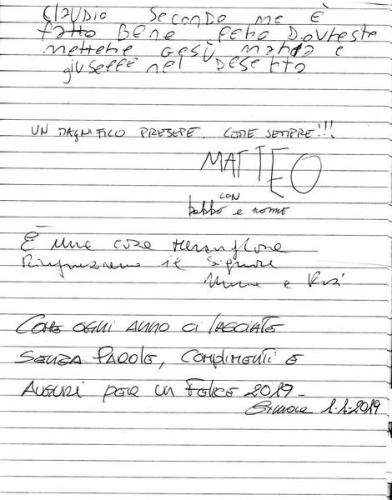 Claudio secondo me è
fatto bene però dovreste
mettere Gesù Maria e
giuseppe nel deserto
UN MAGNIFICO PRESEPE. COME SEMPRE!!!
MATTEO
CON
babbo e nonno
È una cosa meravigliosa
Ringraziamo il Signore
e
COME OGNI ANNO CI LASCIATE
SENZA PAROLE, COMPLIMENTI E
AUGURI PER UN FELICE 2019.
Simone 1-1-2019